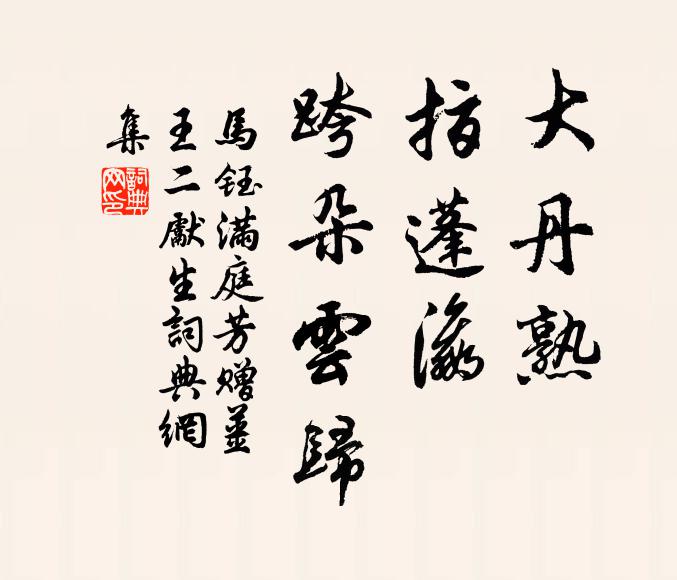 大丹熟
指蓬瀛
跨朵雲歸
馬鈺滿庭芳贈姜
王二獻生詞典網
集
詞典網印